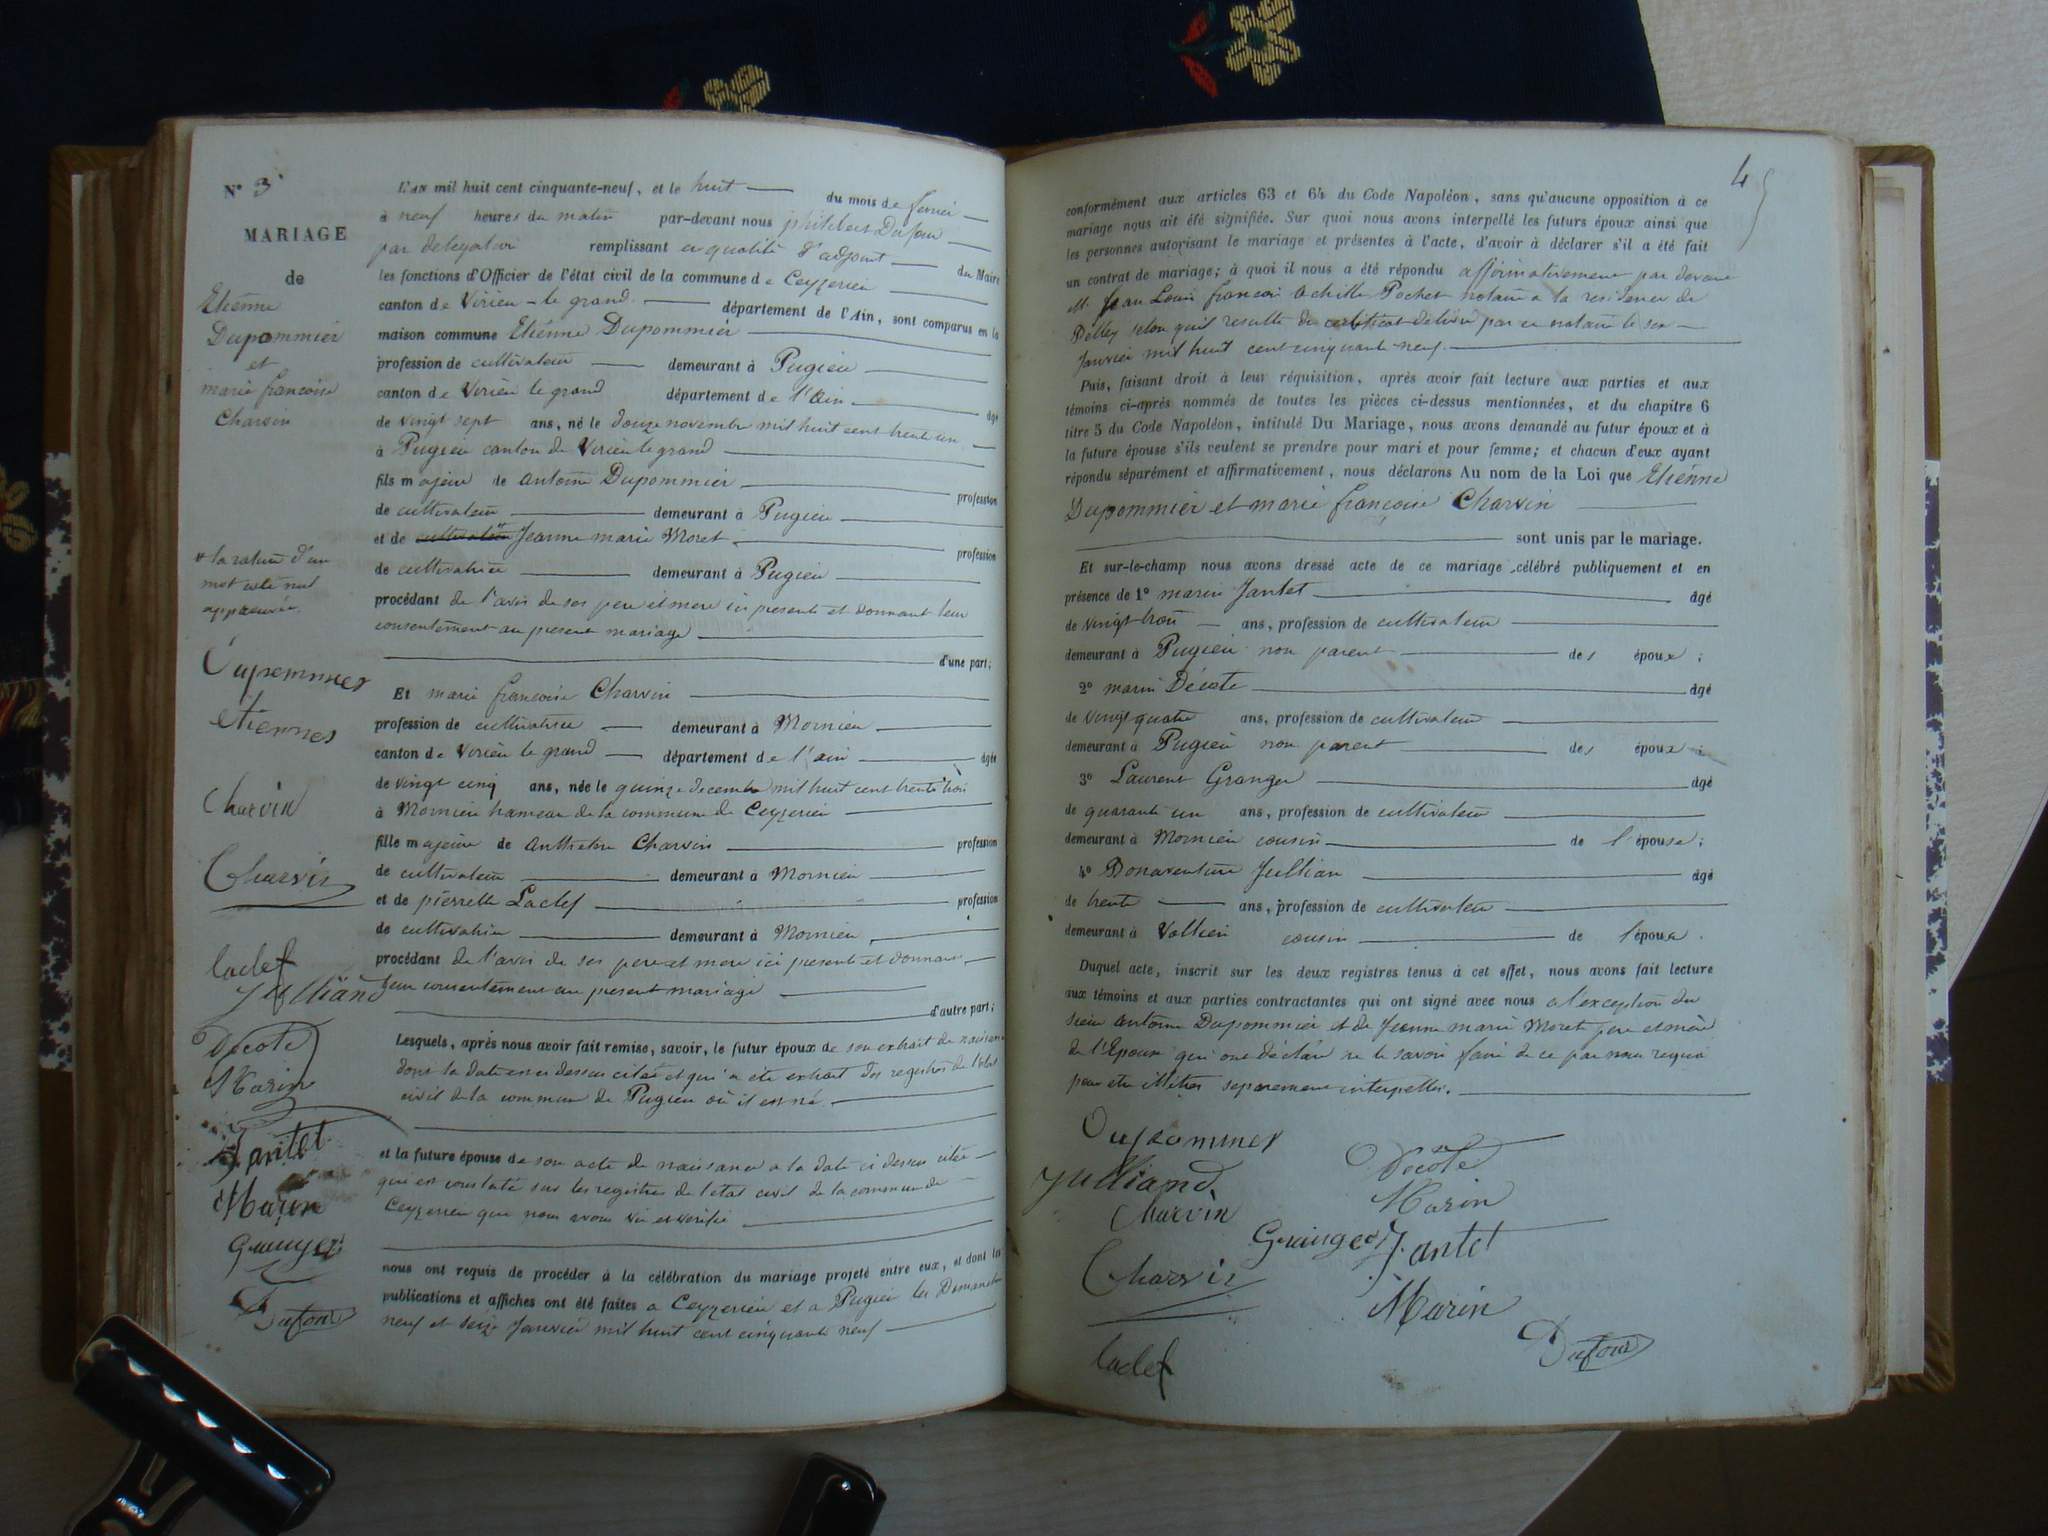 N° 3
MARIAGE
de
Etiénne
Dupommier
et
marie francoise
Charvin
L'AN mil huit cent cinquante-neuf, et le huit du mois de fevrier
à neuf heures du matin par-devant nous philibert Dufour
par delegation remplissant en qualité d'adjoint du Maire
les fonctions d'Officier de l'état civil de la commune de Ceyzerieu
canton de Virieu-le grand département de l'Ain, sont comparus en la
maison commune Etiénne Dupommier
profession de cultivateur demeurant à Pugieu
canton de Virieu le grand département de l'Ain âgé
de vingt sept ans, né le douze novembre mil huit cent trente un
à Pugieu canton de Virieu le grand
fils majeur de antoine Dupommier profession
de cultivateur demeurant à Pugieu
et de cultivatrice Jeanne marie Moret profession
de cultivatrice demeurant à Pugieu
procédant de l'avis de ses pere et mere ici presents et donnant leur
consentement au present mariage
d'une part;
Et marie francoise Charvin
profession de cultivatrice demeurant à Mornieu
canton de Virieu le grand département de l'ain âgée
de vingt cinq ans, née le quinze decembre mil huit cent trente trois
à Mornieu hameau de la commune de Ceyzerieu
fille majeure de anthelme Charvin profession
de cultivateur demeurant à Mornieu
et de pierrette Laclef profession
de cultivatrice demeurant à Mornieu
procédant de l'avis de ses pere et mere ici presents et donnant
leur consentement au present mariage
d'autre part;
Lesquels, après nous avoir fait remise, savoir, le futur époux de son extrait de naissance
dont la date est ci dessus citée et qui a été extrait des registres de l'état
civil de la commune de Pugieu où il est né
et la future épouse de son acte de naissance a la date ci dessus citée
qui est constaté sur les registres de l'etat civil de la commune de
Ceyzerieu que nous avons vu et verifié
nous ont requis de procéder à la célébration du mariage projeté entre eux, et dont les
publications et affiches ont été faites a Ceyzerieu et a Pugieu les Dimanches
neuf et seize Janvier mil huit cent cinquante neuf
la rature d'un
mot est nul
approuvée
Dupommier
etiennes
Charvin
Charvin
laclef
Julliand
Decote
Marin
Jantet
Marin
Granger
Dufour
4
conformément aux articles 63 et 64 du Code Napoléon, sans qu'aucune opposition à ce
mariage nous ait été signifiée. Sur quoi nous avons interpellé les futurs époux ainsi que
les personnes autorisant le mariage et présentes à l'acte, d'avoir à déclarer s'il a été fait
un contrat de mariage; à quoi il nous a été répondu affirmativement par devant
M. Jean Louis francois Achille Pochet notaire a la residence de
Belley selon qu'il resulte du certificat délivré par ce notaire le six
Janvier mil huit cent cinquante neuf.
Puis, faisant droit à leur réquisition, après avoir fait lecture aux parties et aux
témoins ci-après nommés de toutes les pièces ci-dessus mentionnées, et du chapitre 6
titre 5 du Code Napoléon, intitulé Du Mariage, nous avons demandé au futur époux et à
la future épouse s'ils veulent se prendre pour mari et pour femme; et chacun d'eux ayant
répondu séparément et affirmativement, nous déclarons Au nom de la Loi que Etiénne
Dupommier et marie françoise Charvin
sont unis par le mariage.
Et sur-le-champ nous avons dressé acte de ce mariage célébré publiquement et en
présence de 1° marin Jantet âgé
de vingt trois ans, profession de cultivateur
demeurant à Pugieu non parent des époux;
2° marin Décote âgé
de vingt quatre ans, profession de cultivateur
demeurant à Pugieu non parent des époux;
3° Laurent Granger âgé
de quarante un ans, profession de cultivateur
demeurant à Mornieu cousin de l'épouse;
4° Bonaventure Jullian âgé
de trente ans, profession de cultivateur
demeurant à Vollien cousin de l'épouse.
Duquel acte, inscrit sur les deux registres tenus à cet effet, nous avons fait lecture
aux témoins et aux parties contractantes qui ont signé avec nous a l'exception du
sieur antoine Dupommier et de Jeanne marie Moret pere et mère
de l'Epoux qui ont déclaré ne le savoir faire de ce par nous requis
pour etre illétrés separement interpellés.
Dupommier
Decote
Julliand
Marin
Charvin
Granger
Jantet
Charvin
Marin
Dufour
laclef